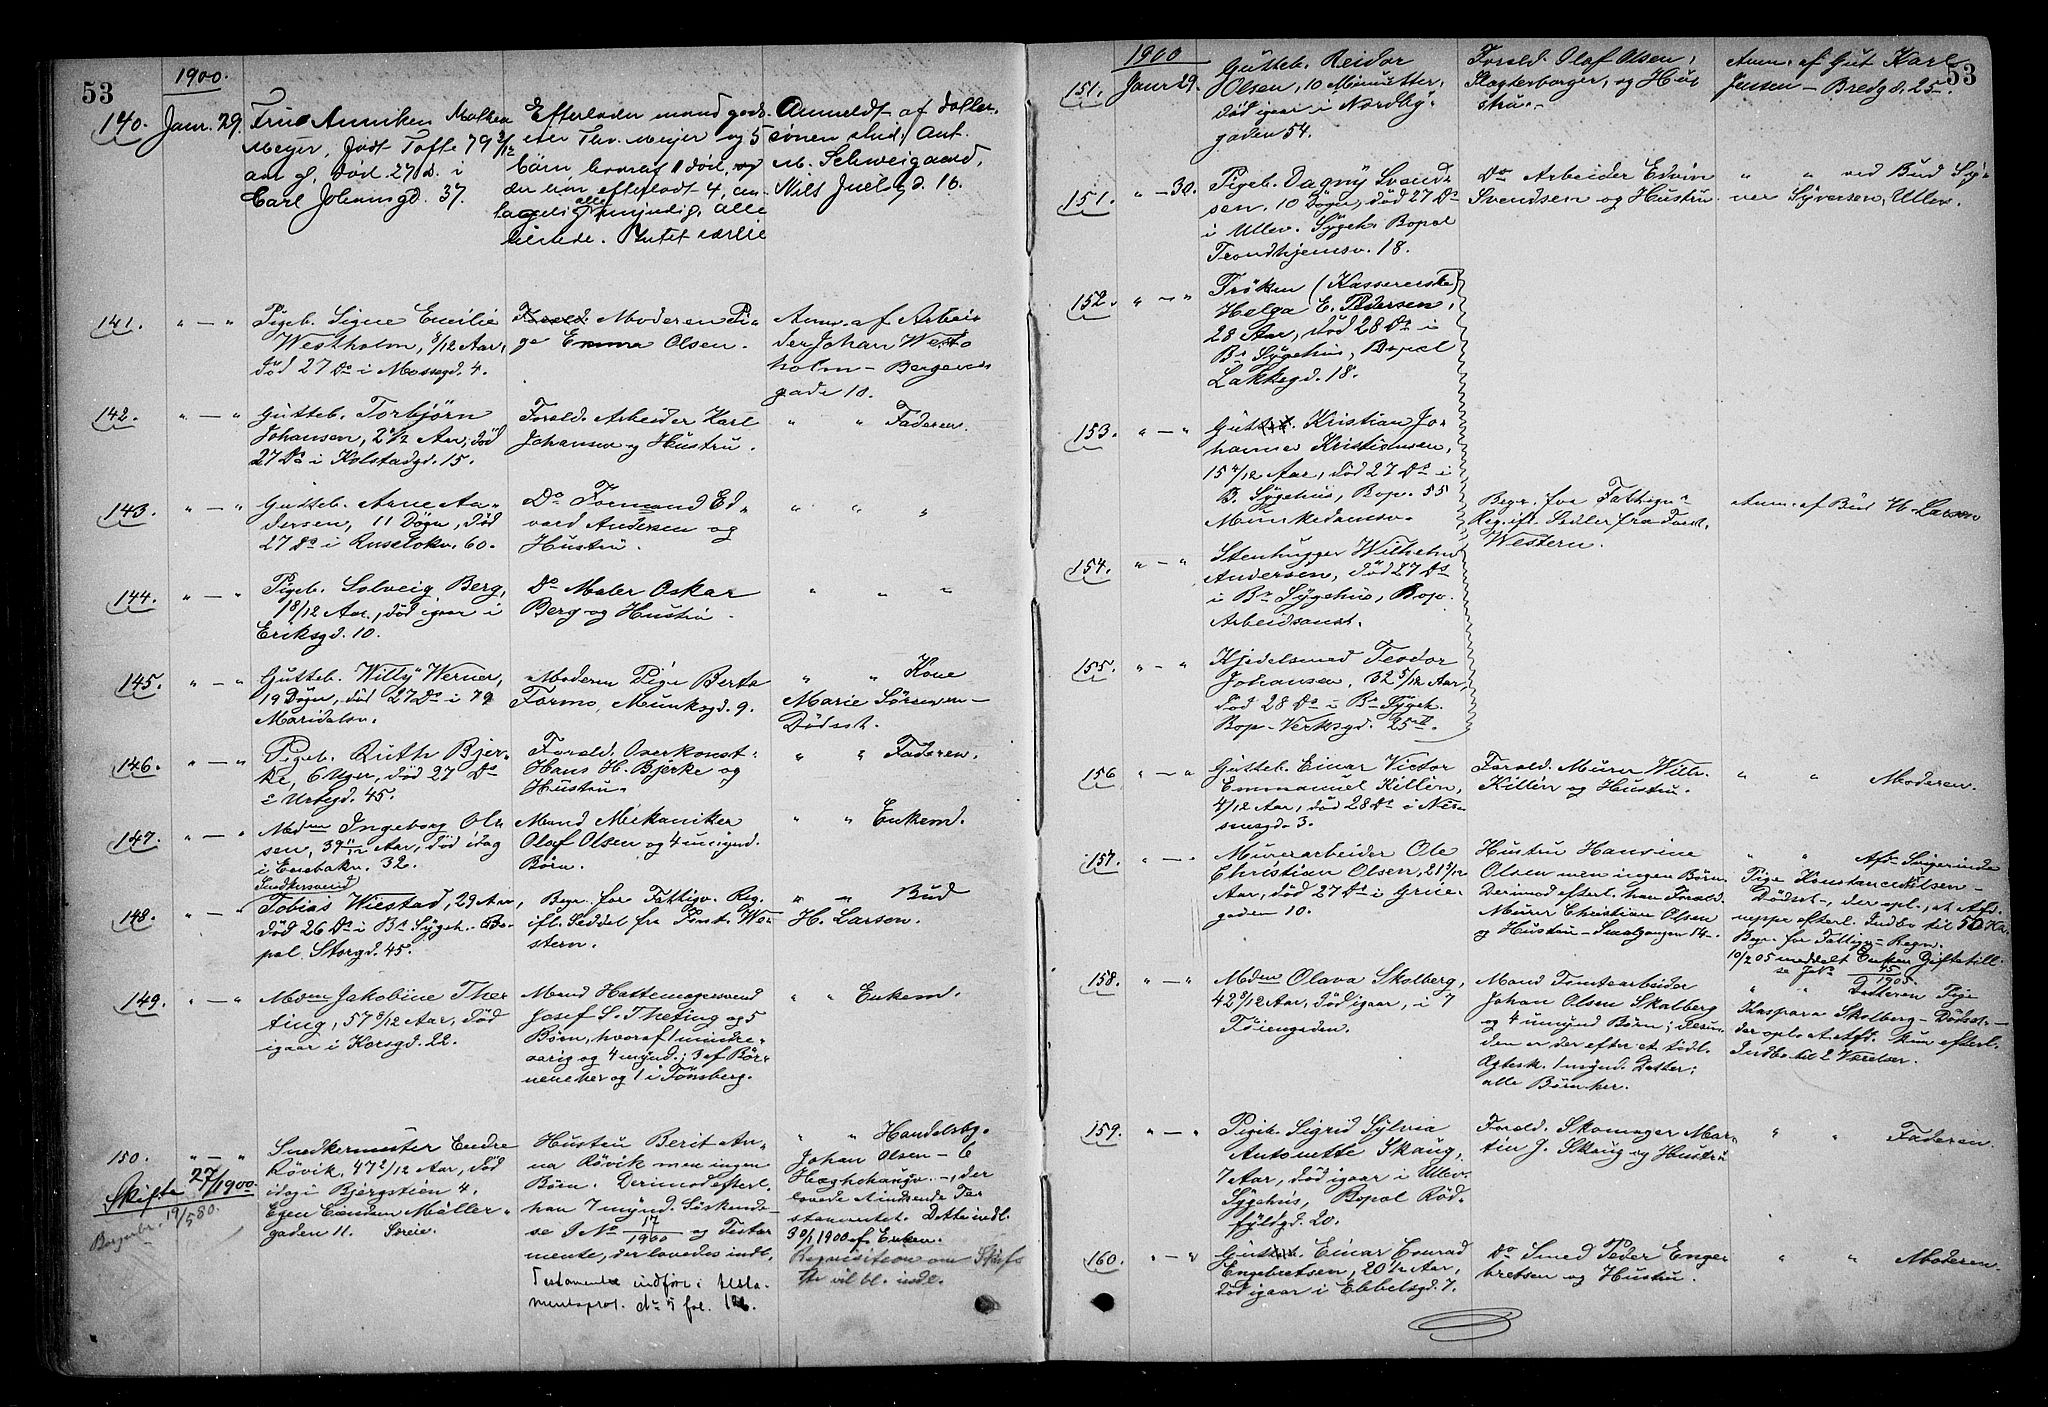 53
1900.
140. Janr. 29.
Frue Anniken Malhea
Meyer, født Tofte 79 3/12
aar gl, død 27 D. i
Carl Johansgd. 37.
Efterlader mand gods-
eier Thv. Meyer og 5
børn, hvoraf 1 død, og
der har efterladt 4, an-
tagelig alle umyndige, alle
Anmeldt af datter-
sønen stud. Ant.
M. Schweigaard,
Nils Juelsgd. 16.
141. " — "
Pigeb. Signe Emilie
Westholm, 3/12 Aar,
død 27 Ds i Mossegd. 4.
Foræld. Moderen Pi-
ge Emma Olsen.
Anm. af Arbei-
der Johan West-
holm – Bergens-
gade 10.
142. " — "
Gutteb. Torbjørn
Johansen, 2 1/2 Aar, død
27 Ds i Kolstadgd. 15.
Foræld. Arbeider Karl
Johansen og Hustru.
" " Faderen.
143. " — "
Gutteb. Arne An-
dersen, 11 Døgn, død
27 Ds i Ruseløkv. 60.
Do Formand Ed-
vard Andersen og
Hustru.
" " "
144. " — "
Pigeb. Solveig Berg,
18/12 Aar, død igaar i
Eriksgd. 10.
Do Maler Oskar
Berg og Hustru.
" " "
145. " — "
Gutteb. Willy Werner,
19 Døgn, død 27 Ds i 79
Maridalsv.
Moderen Pige Berta
Formo, Munksgd. 9.
" " Kone
Marie Sørensen –
Dødsst.
146. " — "
Pigeb. Ruth Bjer-
ke, 6 Uger, død 27 Ds
i Urtegd. 45.
Foræld. Overkonst.
Hans H. Bjerke og
Hustru.
" " Faderen.
147. " — "
Madm Ingeborg Ol-
sen, 39 11/12 Aar, død idag
i Enebakv. 32.
Mand Mekaniker
Olaf Olsen og 4 umynd.
Børn.
" " Enkem.
148. " — "
Snedkersvend
Tobias Wiestad, 29 Aar,
død 26 Ds i Bs Sygeh. Bo-
pæl Storgd. 45.
Begr. for Fattigv. Reg.
ifl. Seddel fra Forst. We-
stern.
" " Bud
H. Larsen.
149. " — "
Madm Jakobine The-
ting, 57 8/12 Aar, død
igaar i Korsgd. 22.
Mand Hattemagersvend
Josef S. Theting og 5
Børn, hvoraf 1 mindre-
aarig og 4 mynd.; 3 af Bør-
nene her og 1 i Tønsberg.
" " Enkem.
150. " — "
Skifte 27/1900.
19/580.
Snedkermester Endre
Røvik, 47 2/12 Aar, død
idag i Bjergstien 4.
Egen Eiendom Møller-
gaden 11.
Hustru Berit An-
na Røvik men ingen
Børn. Derimod efterl.
han 7 mynd. Søskende
se J No 17/1900 og Testa-
mente, der lovedes indl.
Testamentet indfør. i Testa-
mentsprot. No 5 fol. 126.
" " Handelsbg.
Johan Olsen – 6
Hægehaugv. –, der
lovede tinkende Te-
stamentet. Dette indl.
30/1 1900 af Enken.
Requisition om Skif-
te vil bl. indl.
53
1900
151. Janr 29.
Gutteb. Reidar
Olsen, 10 Minutter,
død igaar i Nordby-
gaden 54.
Foræld. Olaf Olsen,
Slagterborger, og Hu-
stru.
Anm. af Gut Karl
Jensen – Bredgd. 25.
151. " — 30.
Pigeb. Dagny Svend-
sen, 10 Døgn, død 27 Ds
i Ullev. Sygeh. Bopæl
Trondhjemsv. 18.
Do Arbeider Edvin
Svendsen og Hustru.
" " ved Bud Sy-
ver Syversen, Ullev.
152. " — "
Frøken (Kassererske)
Helga E. Pedersen,
28 Aar, død 28 Ds i
Bs Sygehus, Bopæl
Lakkegd. 18.
153. " — "
Gutten Kristian Jo-
hannes Kristiansen,
15 4/12 Aar, død 27 Ds i
B. Sygehus, Bop. 55
Munkedamsv.
Begr. for Fattigv.
Reg. ifl. Sedler fra Forst.
Western.
Anm. af Bud H. Larsen
154. " — "
Stenhugger Wilhelm
Andersen, død 27 Ds
i Bs Sygehus, Bop.
Arbeidsanst.
155. " — "
Kjedelsmed Teodor
Johansen, 32 5/12 Aar,
død 28 Ds i Bs Sygeh.
Bop – Verksgd. 25 II
156 " — "
Gutteb. Einar Victor
Emmanuel Killén,
4/12 Aar, død 28 Ds i Nan-
sensgd. 3.
Foræld. Murer Wilh.
Killén og Hustru.
" " Moderen.
157. " — "
Murerarbeider Ole
Christian Olsen, 21 5/12
Aar, død 27 Ds i Grue-
gaden 10.
Hustru Hansine
Olsen men ingen Børn.
Derimod efterl. han Foræld.
Murer Christian Olsen
og Hustru – Smalgangen 14.
" " Afds Svigerinde
Pige Konstance Nilsen –
Dødsst –, der opl., at Afd.
neppe efterl. Indbo til 50 Kr.
Begr. for Fattigv. Regn.
10/2 05 meddelt Enken Giftetill.
se J.No 45/1905.
158. " — "
Madm Olava Skolberg,
42 9/12 Aar, død igaar, i 7
Tøiengaden.
Mand Tomtearbeider
Johan Olsen Skalberg
og 4 umynd Børn; desu-
den er der efter et tidl.
Ægtesk. 1 mynd. Datter;
alle Børn her.
" " Datteren Pige
Kaspara Skolberg – Dødsst. –
der opl. at Afd. kun efterl.
Indbo til 2 Værelser.
159. " — "
Pigeb. Sigrid Sylvia
Antonette Skaug,
7 Aar, død igaar i Ullev.
Sygehus, Bopæl Rød-
fyldgd. 20.
Foræld. Skomager Mar-
tin J. Skaug og Hustru
" " Faderen.
160. " — "
Gutten Einar Conrad
Engebretsen, 20 1/2 Aar,
død igaar i Ebbelsgd. 7.
Do Smed Peder Enge-
bretsen og Hustru.
" " Moderen.